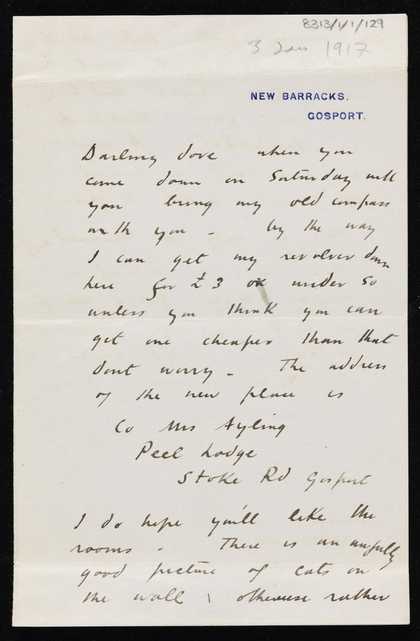 8313/1/1/129
3 Jan 1917
NEW BARRACKS.
GOSPORT.
Darling dove when you
come down on Saturday will
you bring my old compass
with you - by the way
I can get my revolver down
here for £3 or under so
unless you think you can
get one cheaper than that
dont worry - The address
of the new place is
Co Mrs Ayling
Peel Lodge
Stoke Rd Gosport
I do hope you'll like the
rooms - There is an awfully
good picture of cats on
the wall otherwise rather